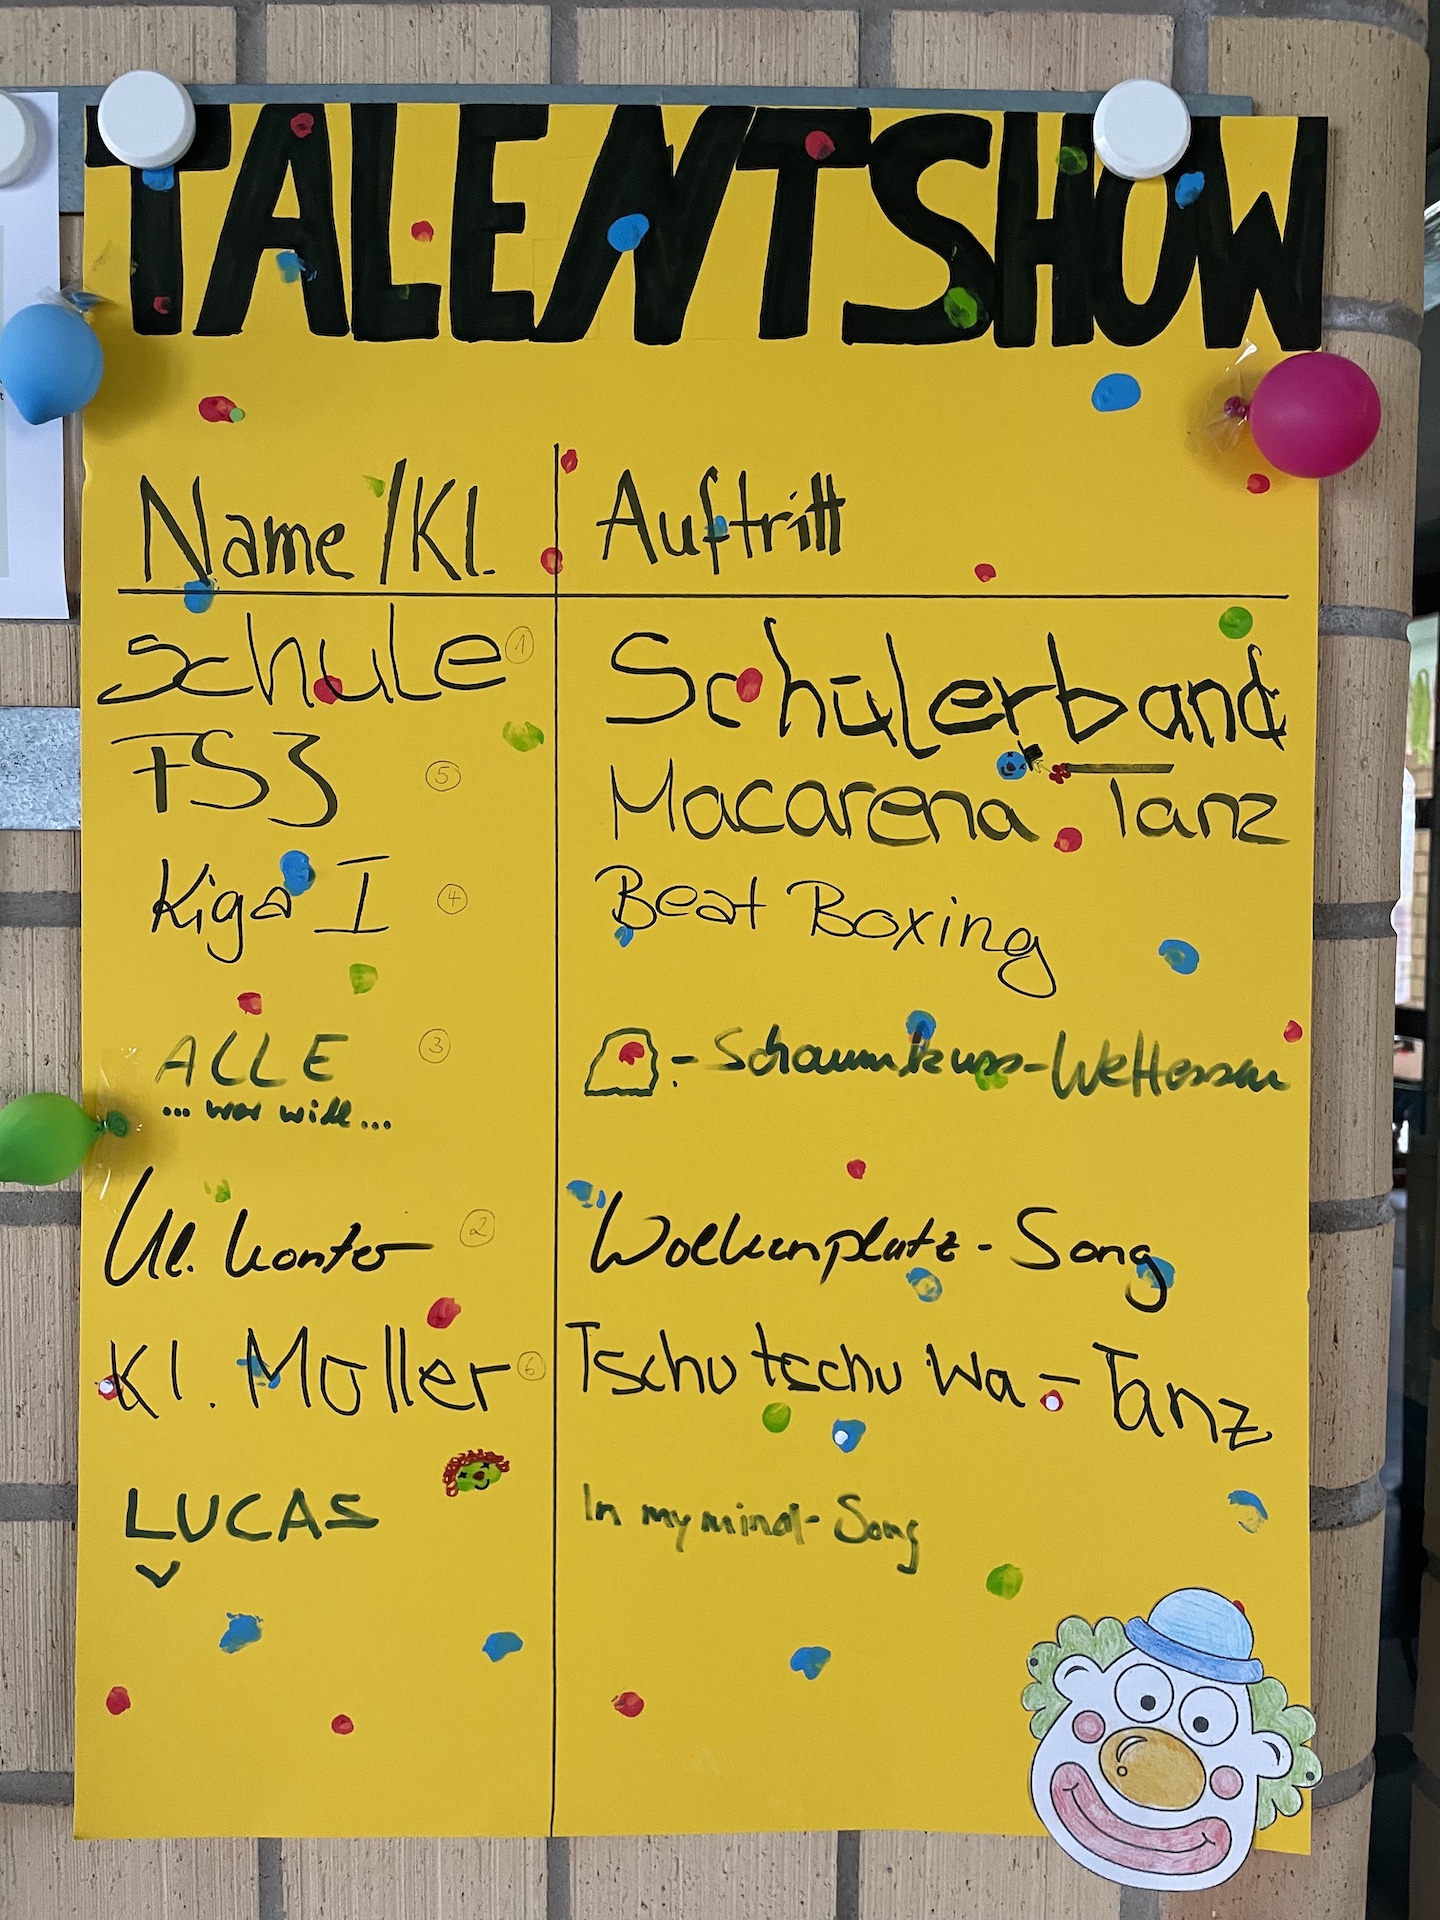 TALENTSHOW
Name/Kl. Auftritt
Schule ① Schülerband
FS3 ⑤ Macarena Tanz
Kiga I ④ Beat Boxing
ALLE ③ - Schaumkuss-Wettessen
... wer will...
Kl. Konter ② Wolkenplatz-Song
Kl. Moller ⑥ Tschu tschu Wa - Tanz
LUCAS In my mind-Song